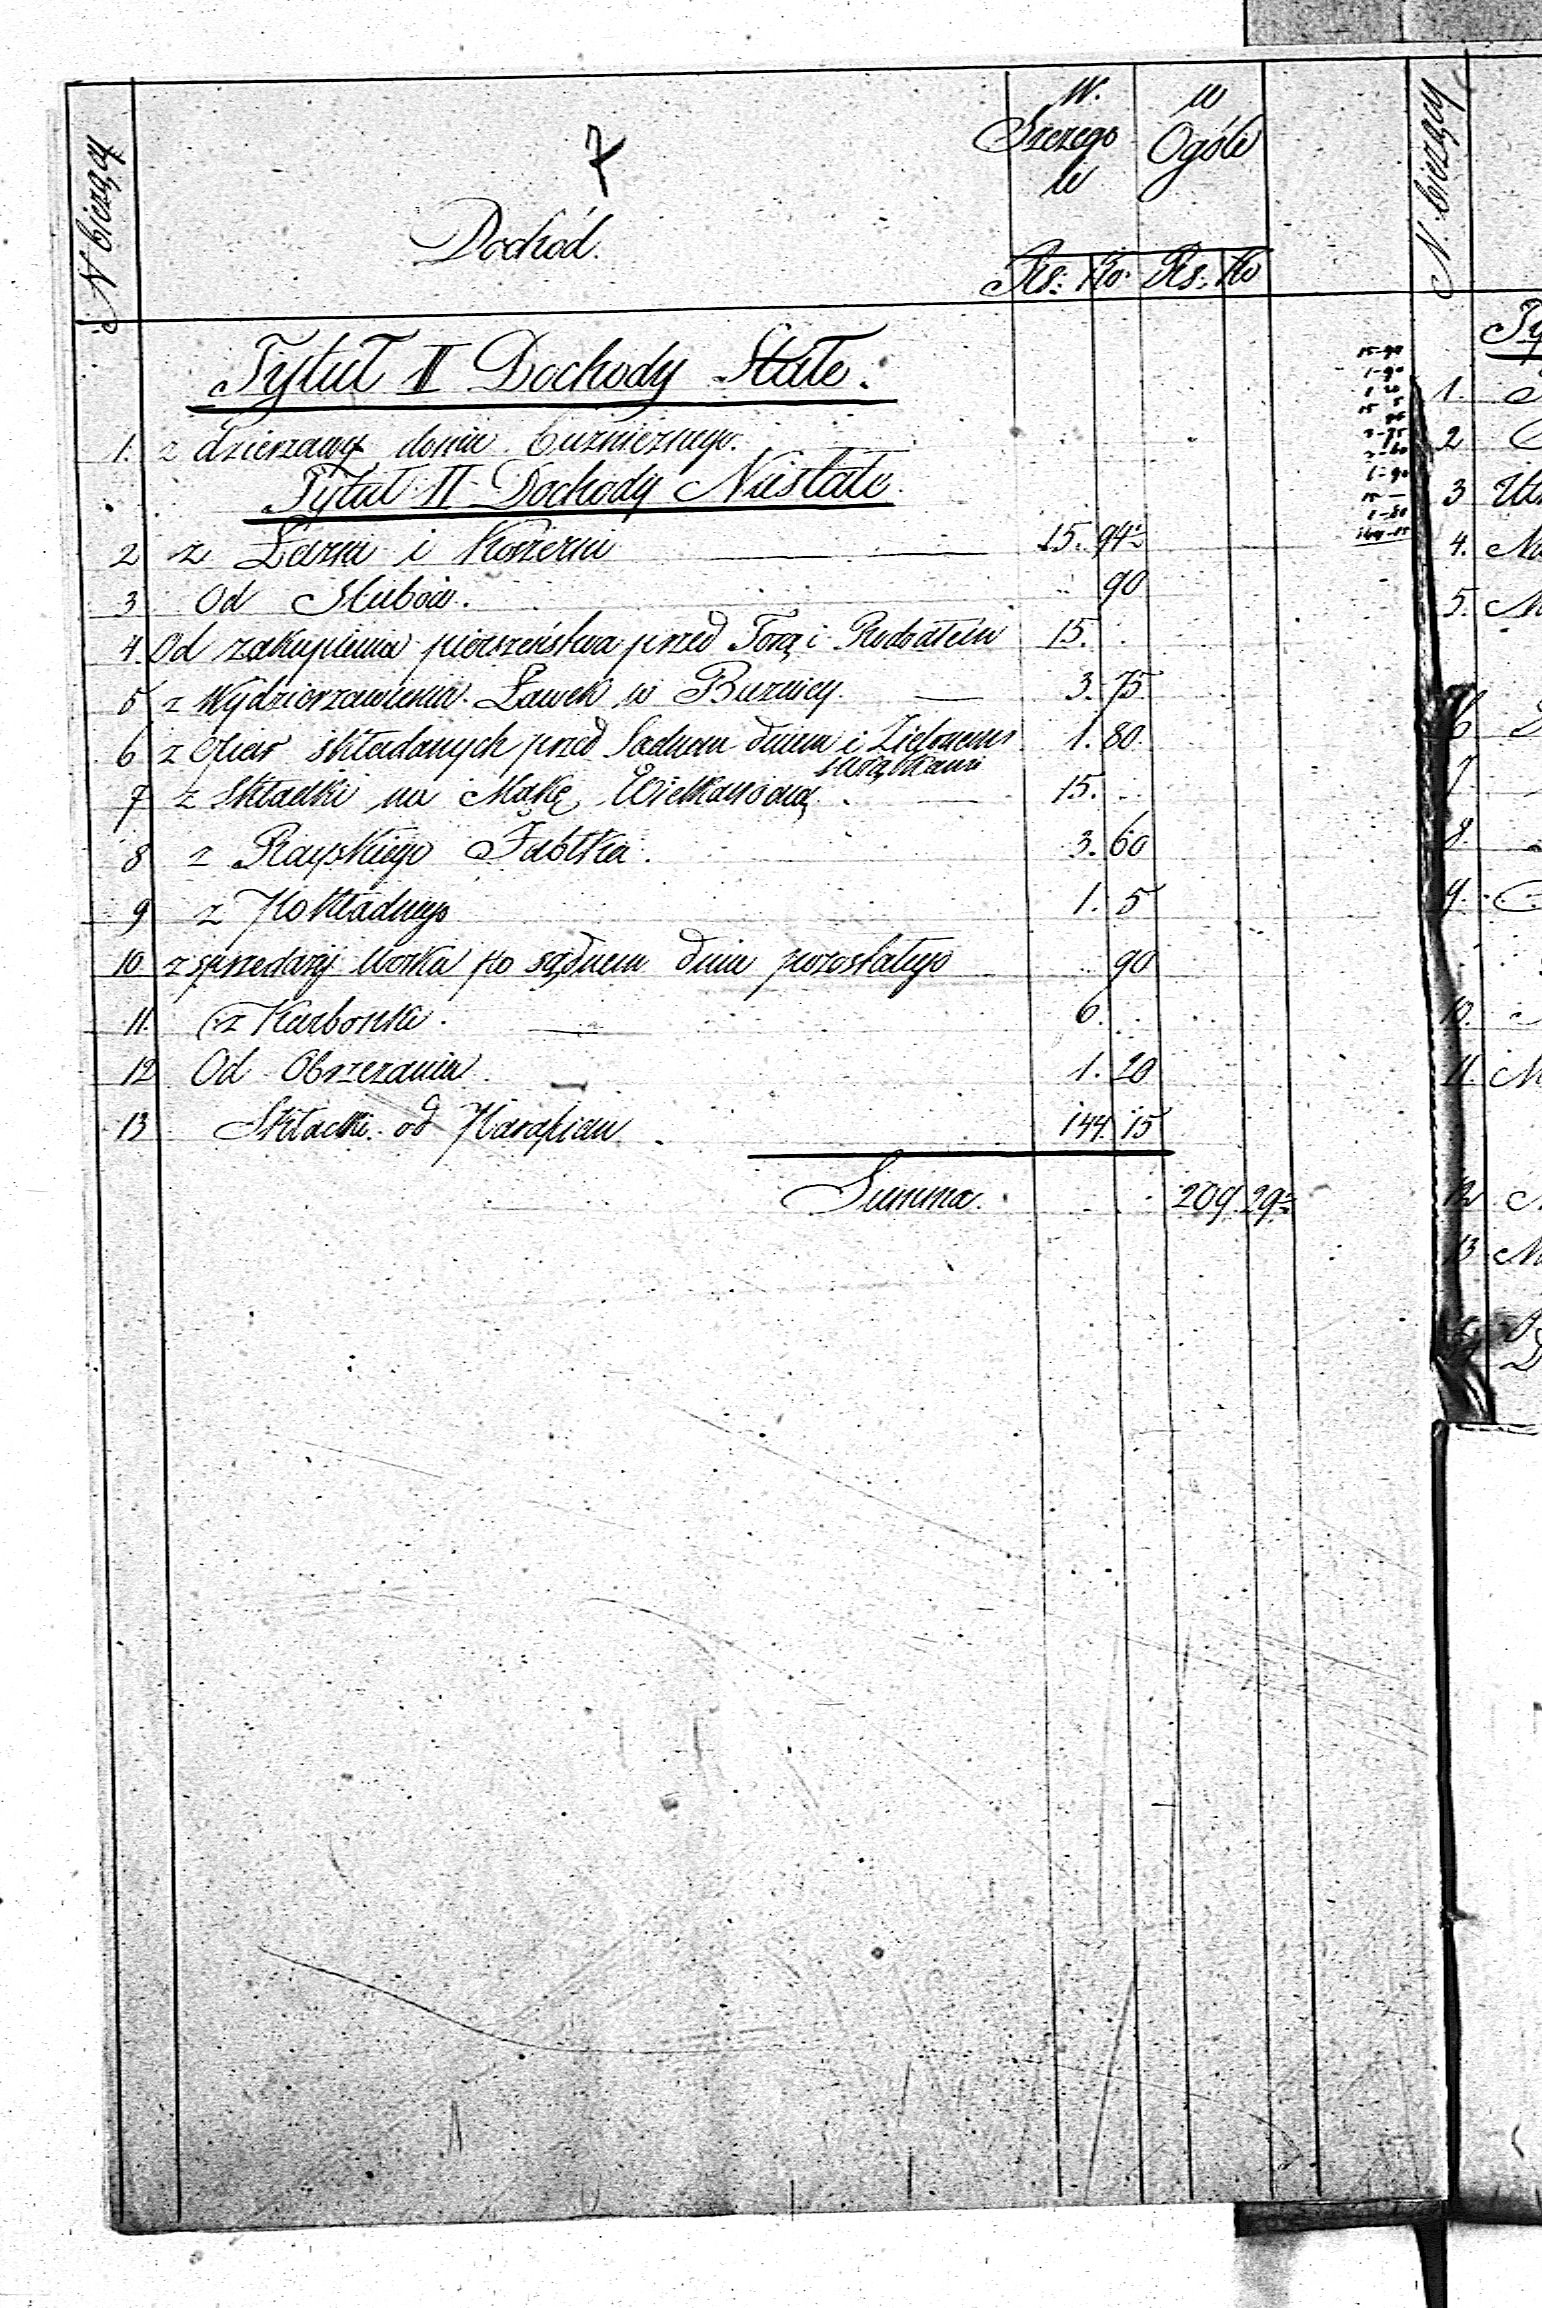 7
N bieżący
Dochód.
W. Szczególe
w Ogóle
Rs: Ko: Rs. Ko
Tytuł II Dochody Stałe.
1. z dzierzawy domu bużnicznego.
Tytuł II Dochody Niestałe.
2 z Łazni i Koszerni 15. 94½
3 Od Slubów. 90
4. Od zakupienia pierszeństwa przed Torą i Rodałem 15.
5 z Wydzierzawienia Ławek w Buznicy. 3. 75
6 z Ofiar składanych przed Sadnem dniem i Zielonemi 1. 80
swiątkami
7 z Składki na Mąkę Wielkanocną. 15.
8 z Rayskiego Jabłka. 3. 60
9 z Pokładnego 1. 5
10 z sprzedaży Woska po sądnem dniu pozostałego 90
11. z Karbonki. 6.
12 Od Obrzezania. 1. 20
13 Składki od Parafian 144. 15
Summa. 209. 29½
N. bieżący
15-94
1-90
1 20
15 5
3-75
6-90
15 -
1-80
144-15
1.
2
3
4.
5.
6
7
8.
9.
10.
11.
12
13